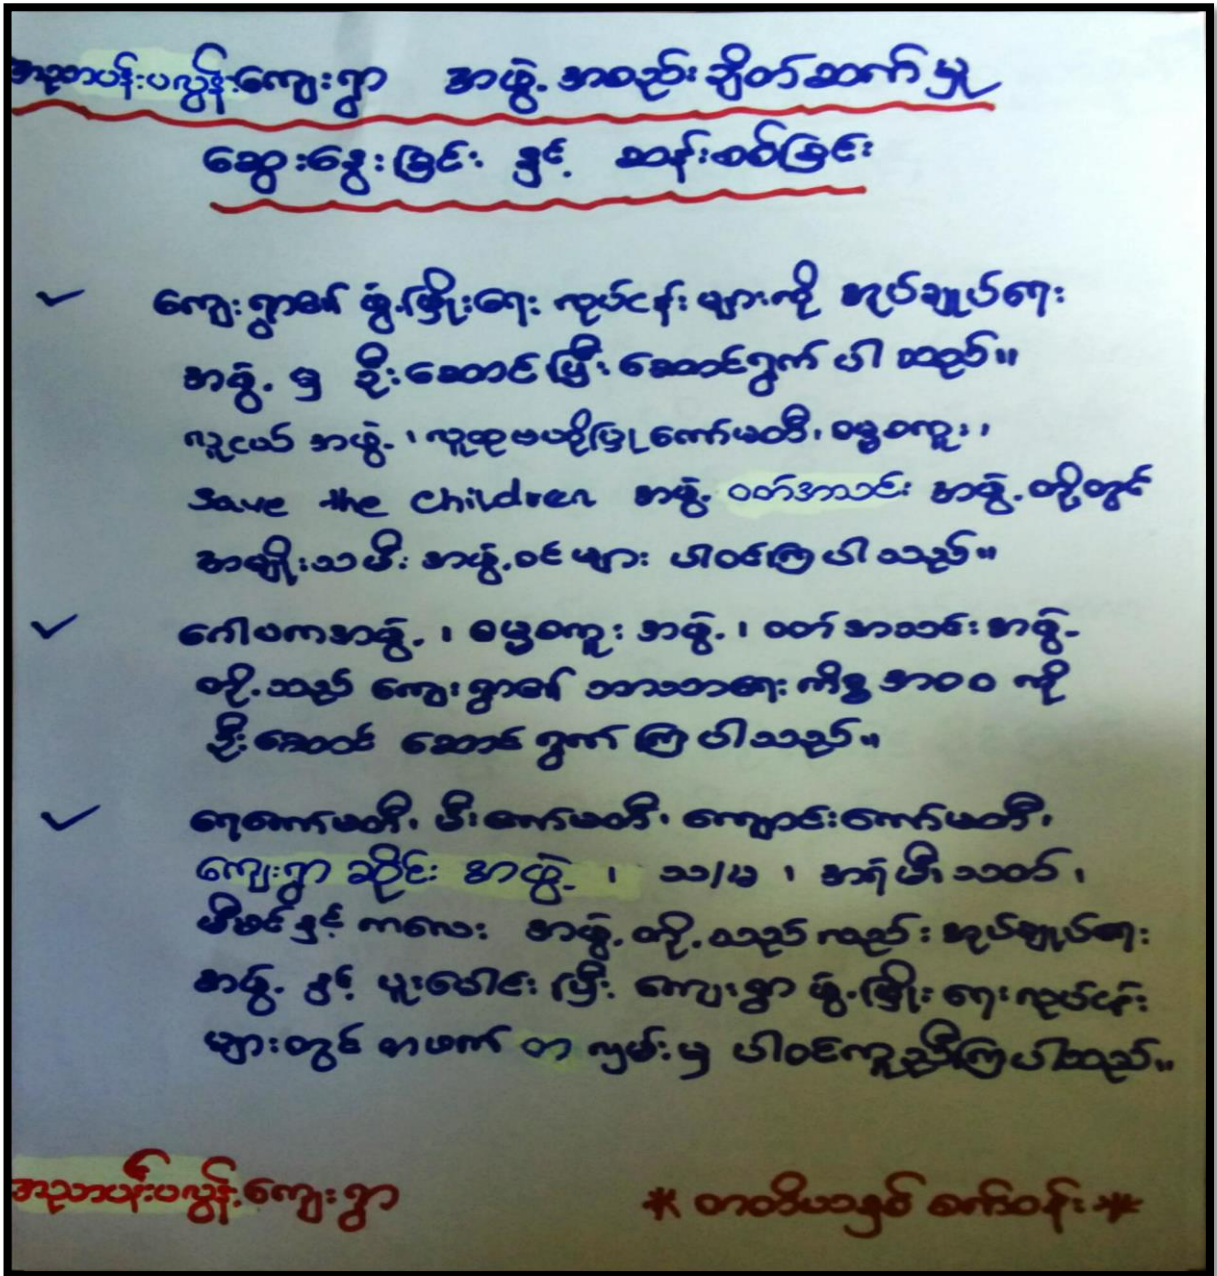 အညာပန်းပလွန်းကျေးရွာ အဖွဲ့အစည်းချိတ်ဆက်မှု
ဆွေးနွေးခြင်း နှင့် ဆန်းစစ်ခြင်း
✓ ကျေးရွာ၏ ဖွံ့ဖြိုးရေး လုပ်ငန်း များကို အုပ်ချုပ်ရေး
အဖွဲ့ မှ ဦးဆောင်ပြီး ဆောင်ရွက် ပါ သည်။
လူငယ် အဖွဲ့၊ လူထုဗဟိုပြုကော်မတီ၊ ဓမ္မစကူး၊
Save the children အဖွဲ့ ဝတ်အသင်း အဖွဲ့တို့တွင်
အမျိုးသမီး အဖွဲ့ဝင်များ ပါဝင်ကြပါသည်။
✓ ဂေါပကအဖွဲ့၊ ဓမ္မစကူး အဖွဲ့၊ ဝတ်အသင်းအဖွဲ့
တို့သည် ကျေးရွာ၏ ဘာသာရေး ကိစ္စ အဝဝ ကို
ဦးဆောင် ဆောင်ရွက် ကြ ပါသည်။
✓ ရေကော်မတီ၊ မီးကော်မတီ၊ ကျောင်းကော်မတီ၊
ကျေးရွာ ဆိုင်း အဖွဲ့ ၊ သ/မ ၊ အရံမီးသတ်၊
မိခင်နှင့် ကလေး အဖွဲ့တို့သည်လည်း အုပ်ချုပ်ရေး
အဖွဲ့ နှင့် ပူးပေါင်း ပြီး ကျေးရွာ ဖွံ့ဖြိုး ရေးလုပ်ငန်း
များတွင် တဖက် တ လှမ်းမှ ပါဝင်ကူညီကြပါသည်။
အညာပန်းပလွန်းကျေးရွာ * တတိယနှစ် စက်ဝန်း *